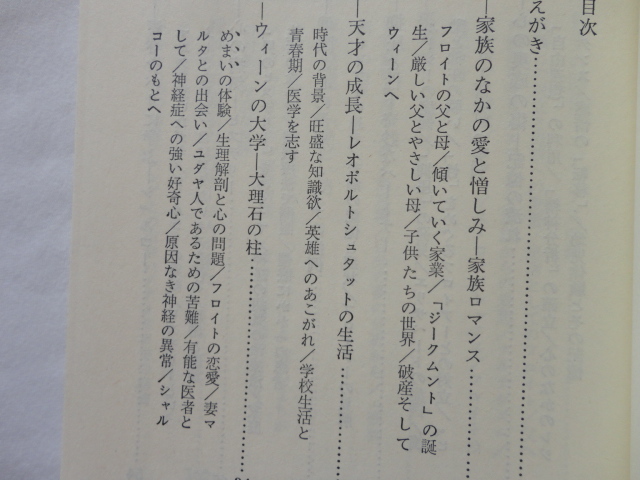 目次
えがき……………………
―家族のなかの愛と憎しみ―家族ロマンス……
フロイトの父と母／傾いていく家業／「ジークムント」の誕
生／厳しい父とやさしい母／子供たちの世界／破産そして
ウィーンへ
―天才の成長―レオポルトシュタットの生活……
時代の背景／旺盛な知識欲／英雄へのあこがれ／学校生活と
青春期／医学を志す
―ウィーンの大学―大理石の柱……………
めまいの体験／生理解剖と心の問題／フロイトの恋愛／妻マ
ルタとの出会い／ユダヤ人であるための苦難／有能な医者と
して／神経症への強い好奇心／原因なき神経の異常／シャル
コーのもとへ